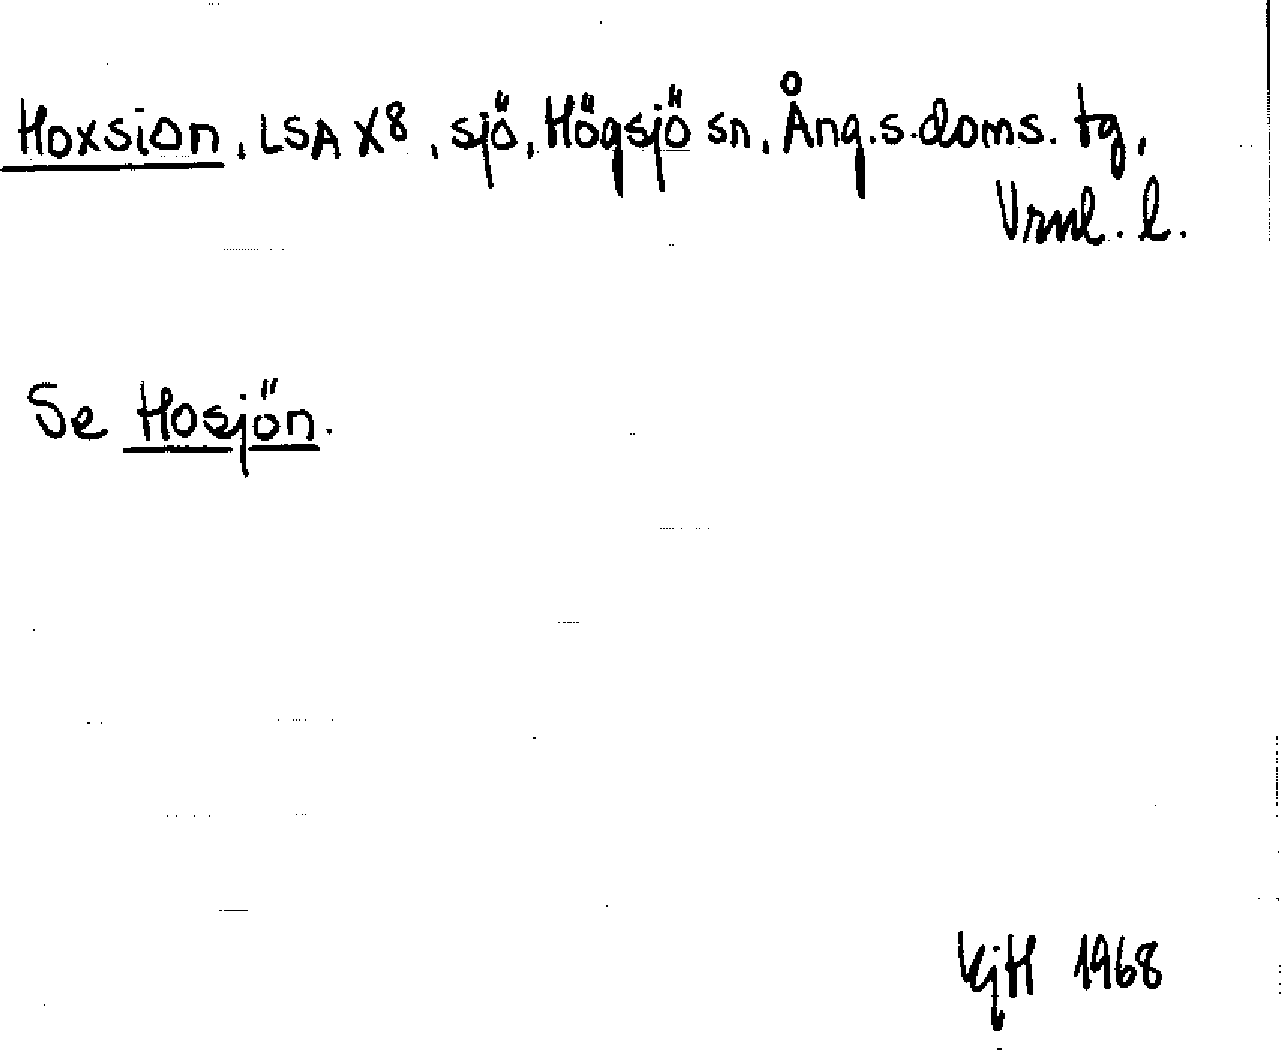 Hoxsion, LSA X8, sjö, Högsjö sn, Ång.s.doms. tg,
Vrnl. l.
Se Hosjön.
KjH 1968